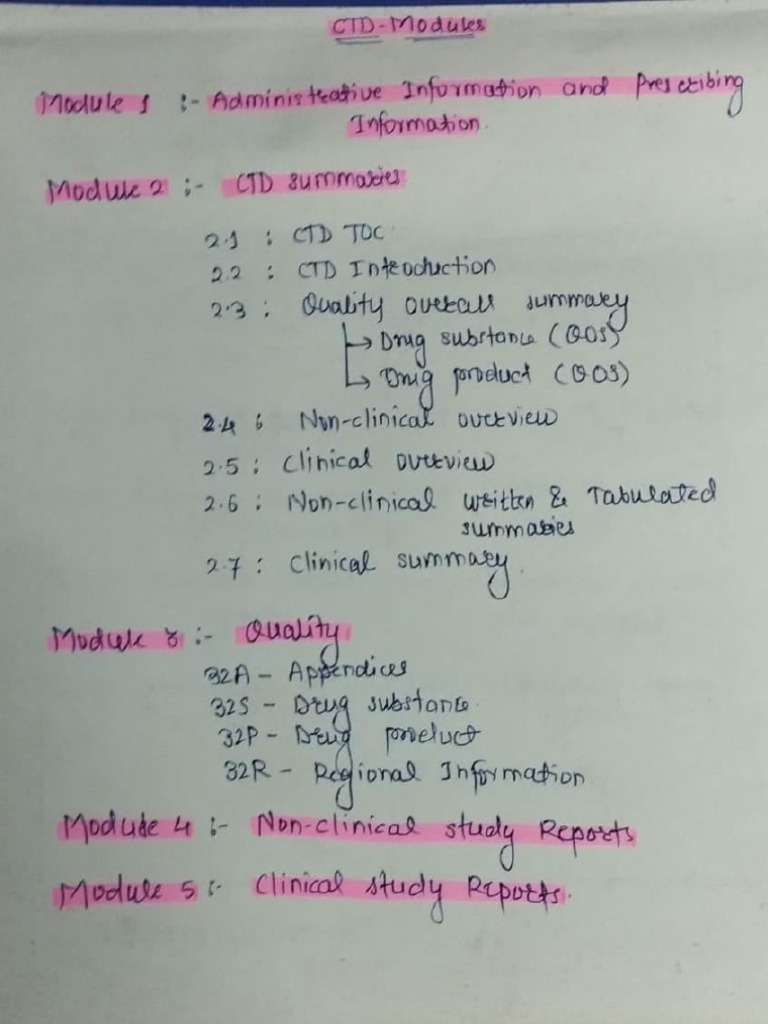 CTD-Modules
Module 1 :- Administrative Information and Prescribing
Information.
Module 2 :- CTD summaries
2.1 : CTD TOC
2.2 : CTD Introduction
2.3 : Quality overall summary
↳ Drug substance (QOS)
↳ Drug product (QOS)
2.4 : Non-clinical overview
2.5 : Clinical overview
2.6 : Non-clinical written & Tabulated
summaries
2.7 : Clinical summary.
Module 3 :- Quality
32A - Appendices
32S - Drug substance.
32P - Drug product
32R - Regional Information
Module 4 :- Non-clinical study Reports
Module 5 :- Clinical study Reports.